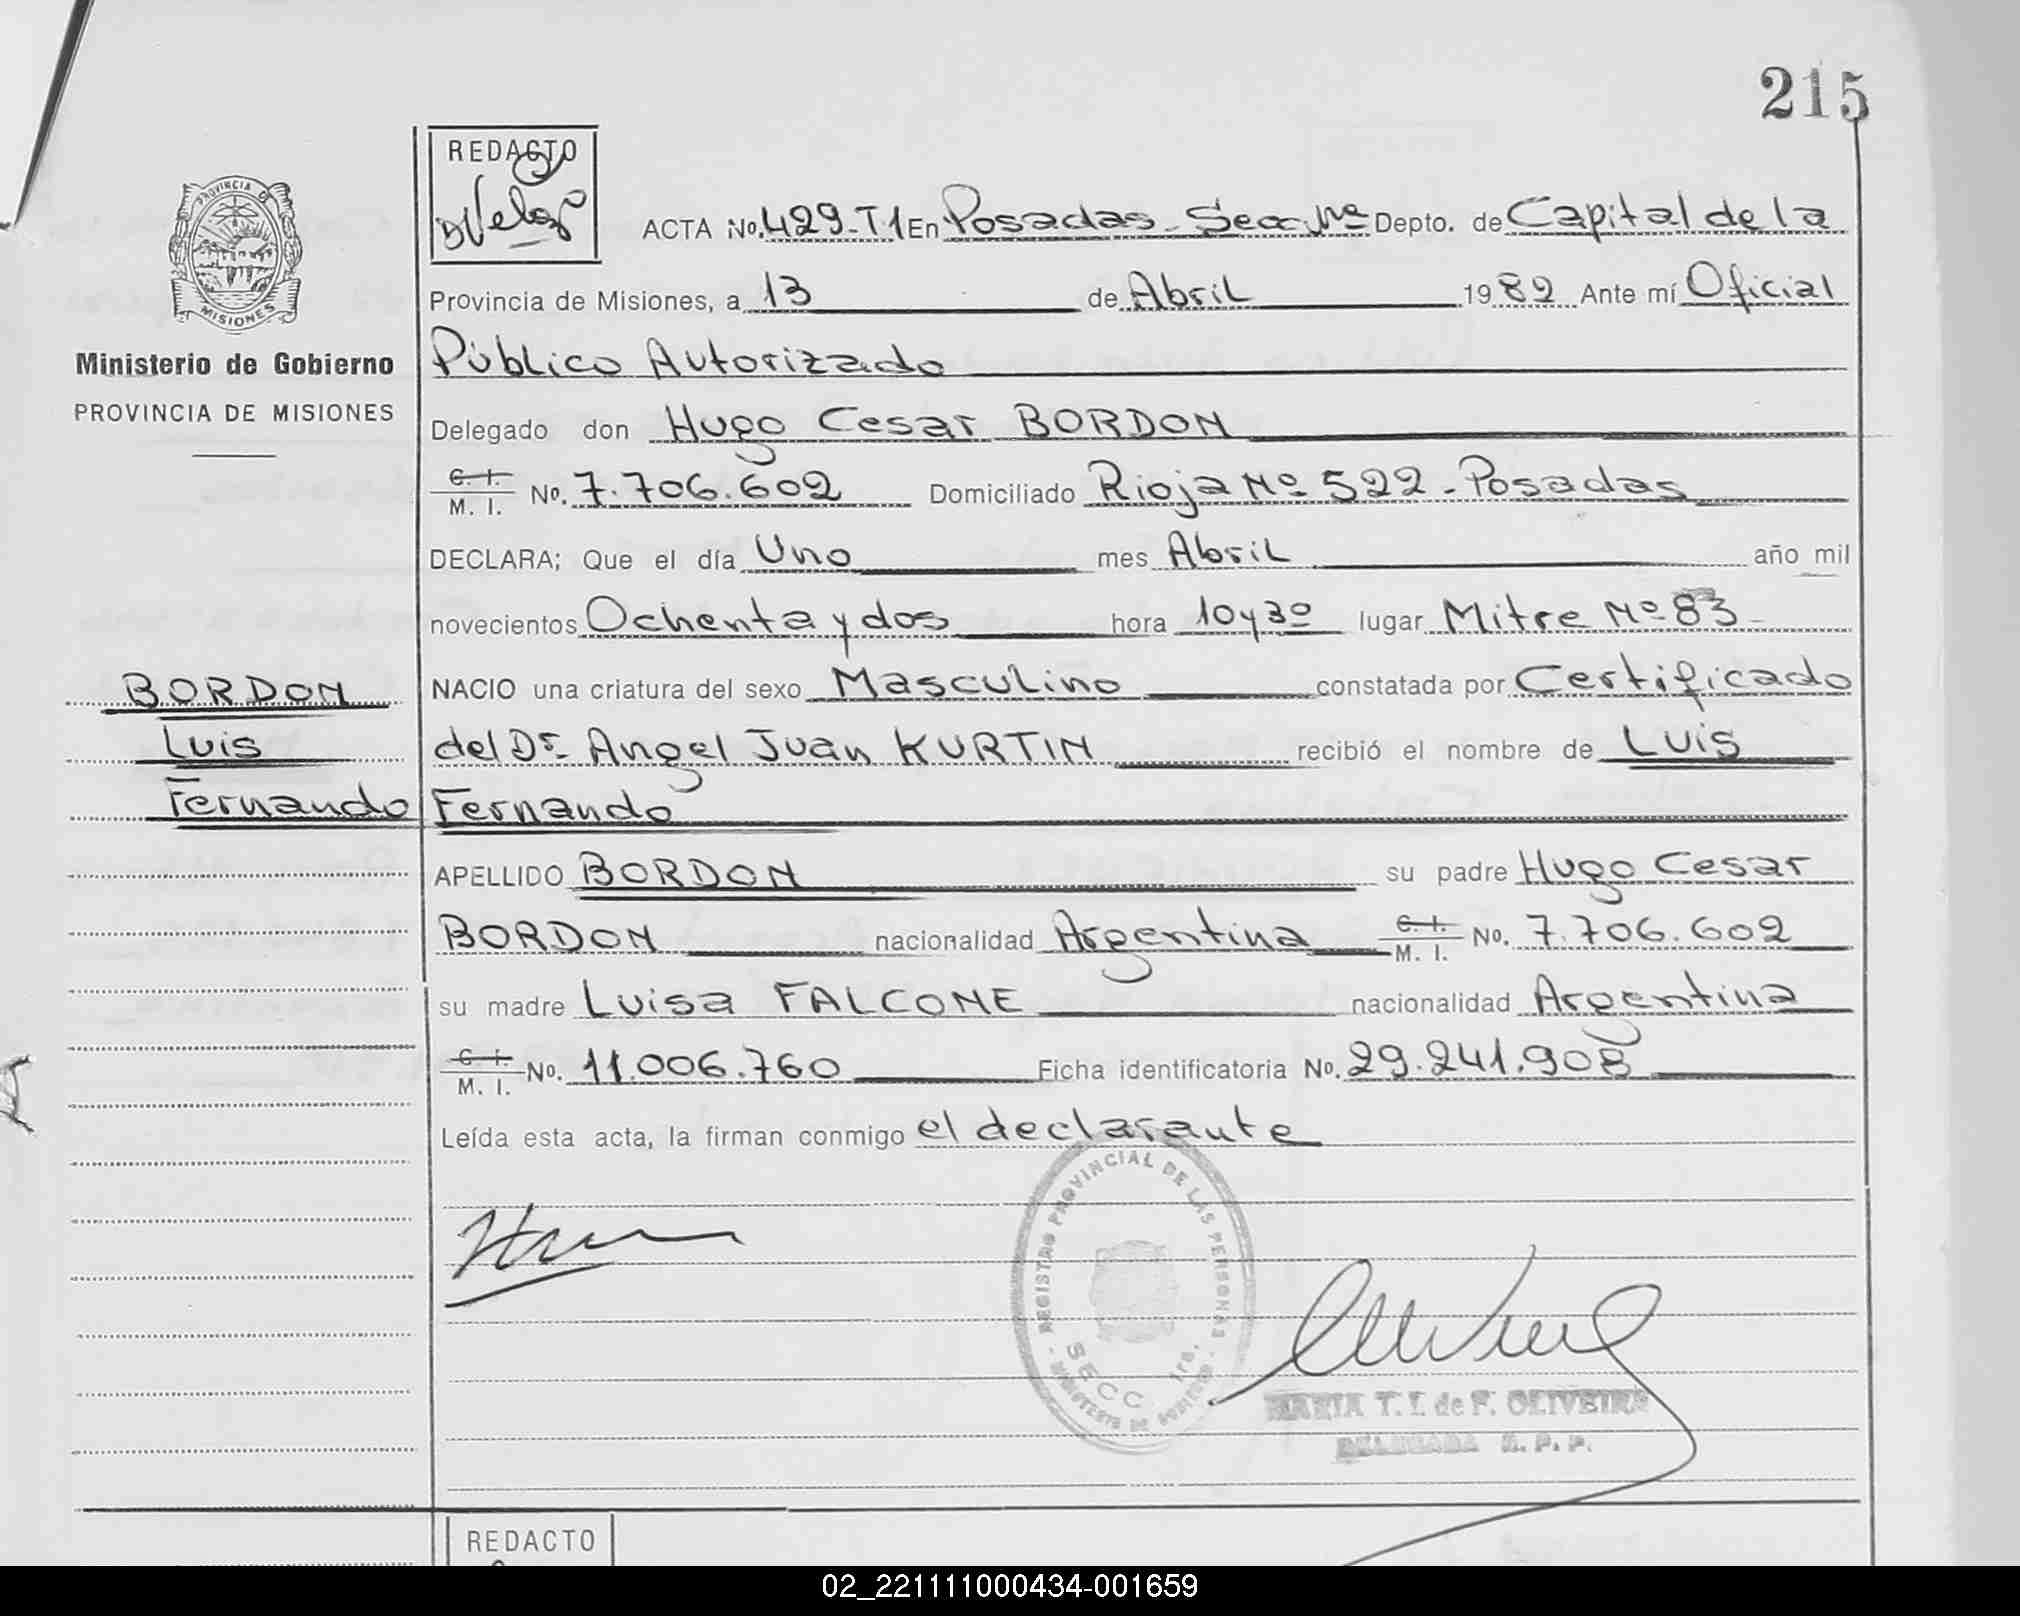 215
REDACTO
PROVINCIA DE
MISIONES
Ministerio de Gobierno
PROVINCIA DE MISIONES
ACTA No. 429-T1 En Posadas-Secc 1ra Depto. de Capital de la
Provincia de Misiones, a 13 de Abril 1982 Ante mí Oficial
Público Autorizado
Delegado don Hugo Cesar BORDON
C. I. M. I. No. 7.706.602 Domiciliado Rioja Nº 522-Posadas
DECLARA; Que el día Uno mes Abril año mil
novecientos Ochenta y dos hora 10 y 30 lugar Mitre Nº 83-
NACIO una criatura del sexo Masculino constatada por Certificado
del Dr. Angel Juan KURTIN recibió el nombre de Luis
Fernando
BORDON
Luis
Fernando
APELLIDO BORDON su padre Hugo Cesar
BORDON nacionalidad Argentina C. I. M. I. No. 7.706.602
su madre Luisa FALCONE nacionalidad Argentina
C. I. M. I. No. 11.006.760 Ficha identificatoria No. 29.241.908
Leída esta acta, la firman conmigo el declarante
REGISTRO PROVINCIAL DE LAS PERSONAS
SECC 1ra.
MINISTERIO DE GOBIERNO
MARIA T. I. de F. OLIVEIRA
DELEGADA R. P. P.
REDACTO
02_221111000434-001659